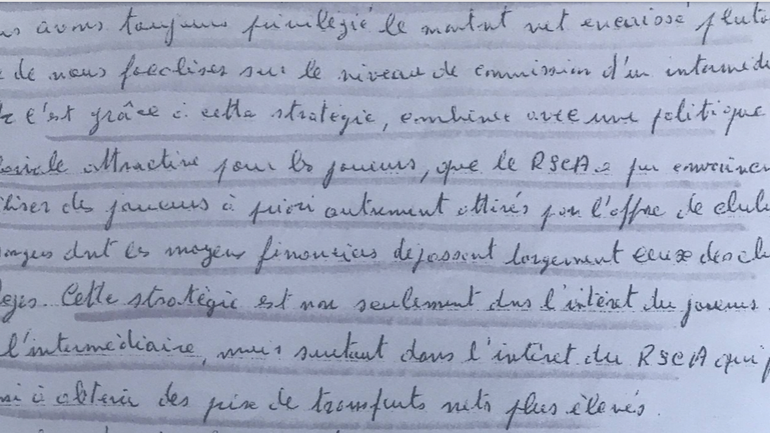 avons toujours privilégié le montant net encaissé
de nous focaliser sur le niveau de commission d'un
c'est grâce à cette stratégie, combinée avec une politique
attractive pour les joueurs, que le RSCA a pu
des joueurs à priori autrement attirés par l'offre de
dont les moyens financiers dépassent largement ceux des
Cette stratégie est non seulement dans l'intérêt du joueurs
l'intermédiaire, mais surtout dans l'intérêt du RSCA qui
à obtenir des prix de transferts nets plus élevés.